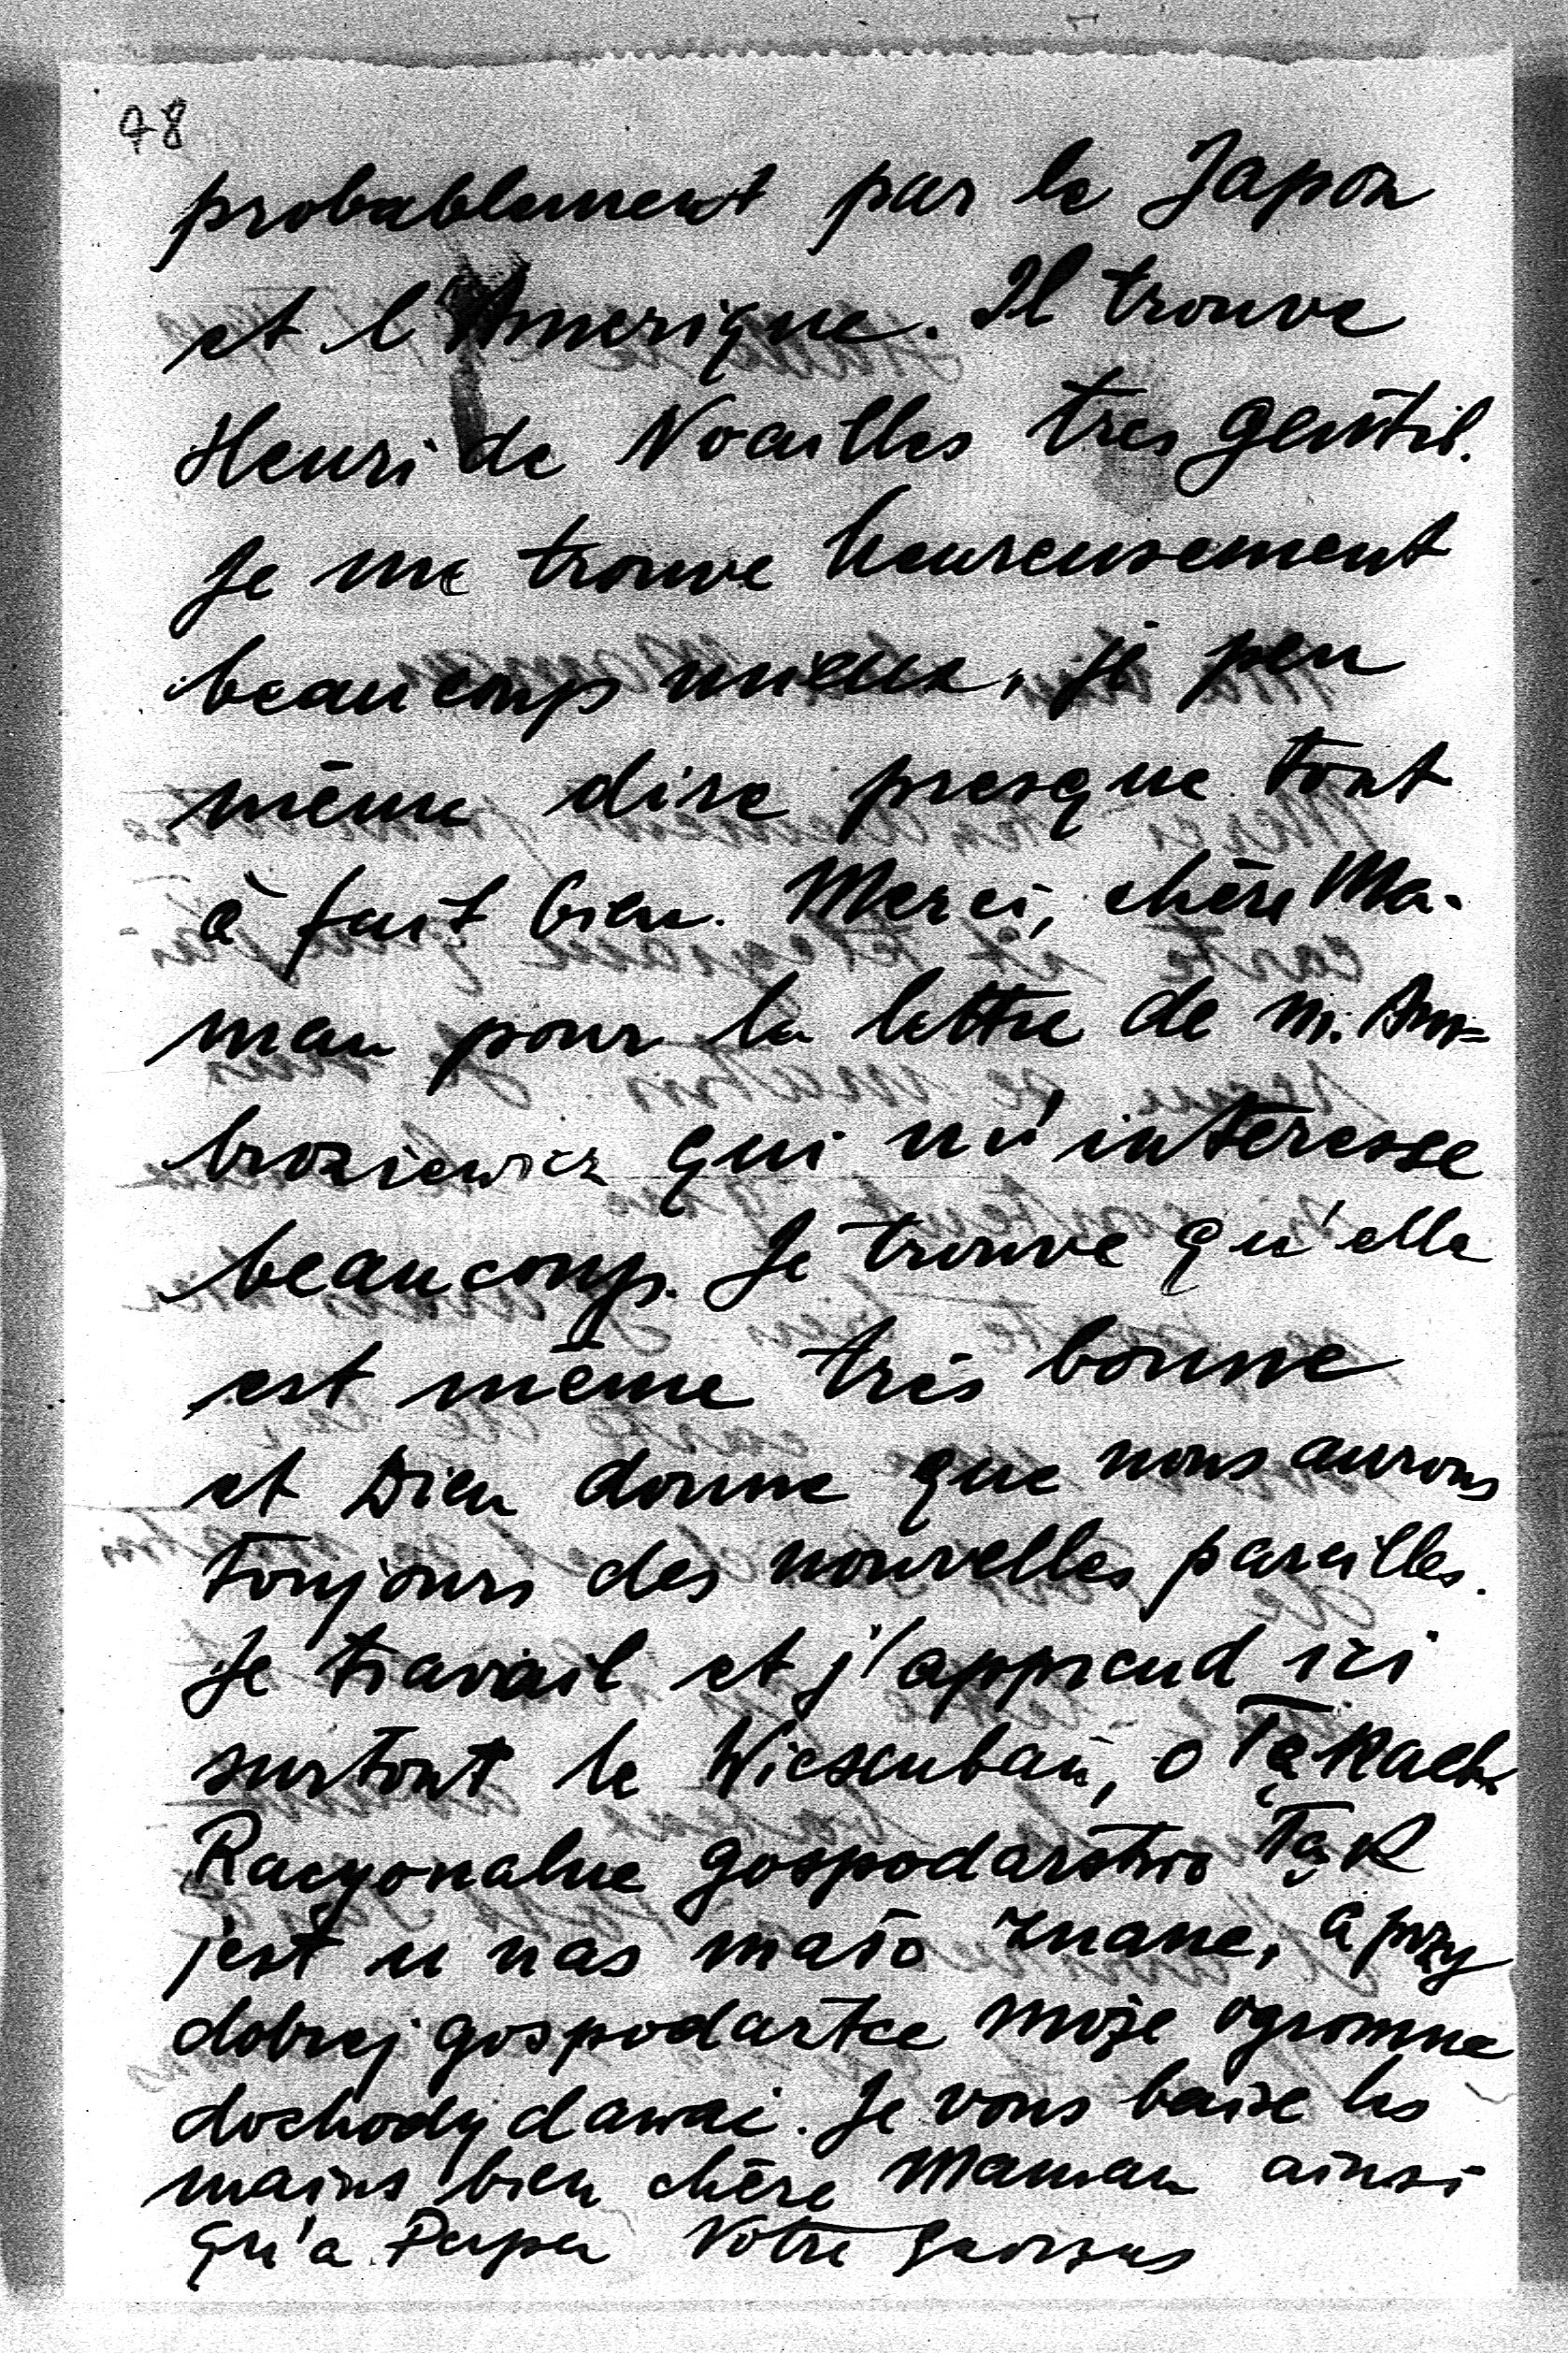 48
probablement par le Japon
et l'Amerique. Il trouve
Henri de Noailles tres gentil.
Je me trouve heureusement
beaucoup mieux, je peu
même dire presque tout
à fait bien. Merci, chère Ma-
man pour la lettre de M. Am=
broziewicz qui m'intéresse
beaucoup. Je trouve qu'elle
est même très bonne
et Dieu donne que nous aurons
toujours des nouvelles pareilles.
Je travail et j'apprend ici
surtout le Wiesenbau, o
Racyonalne gospodarstwo łąk
jest u nas mało znane, a przy
dobrej gospodartce może ogromne
dochody dawać. Je vous baise les
mains bien chère Maman ainsi
qu'a Papa Votre